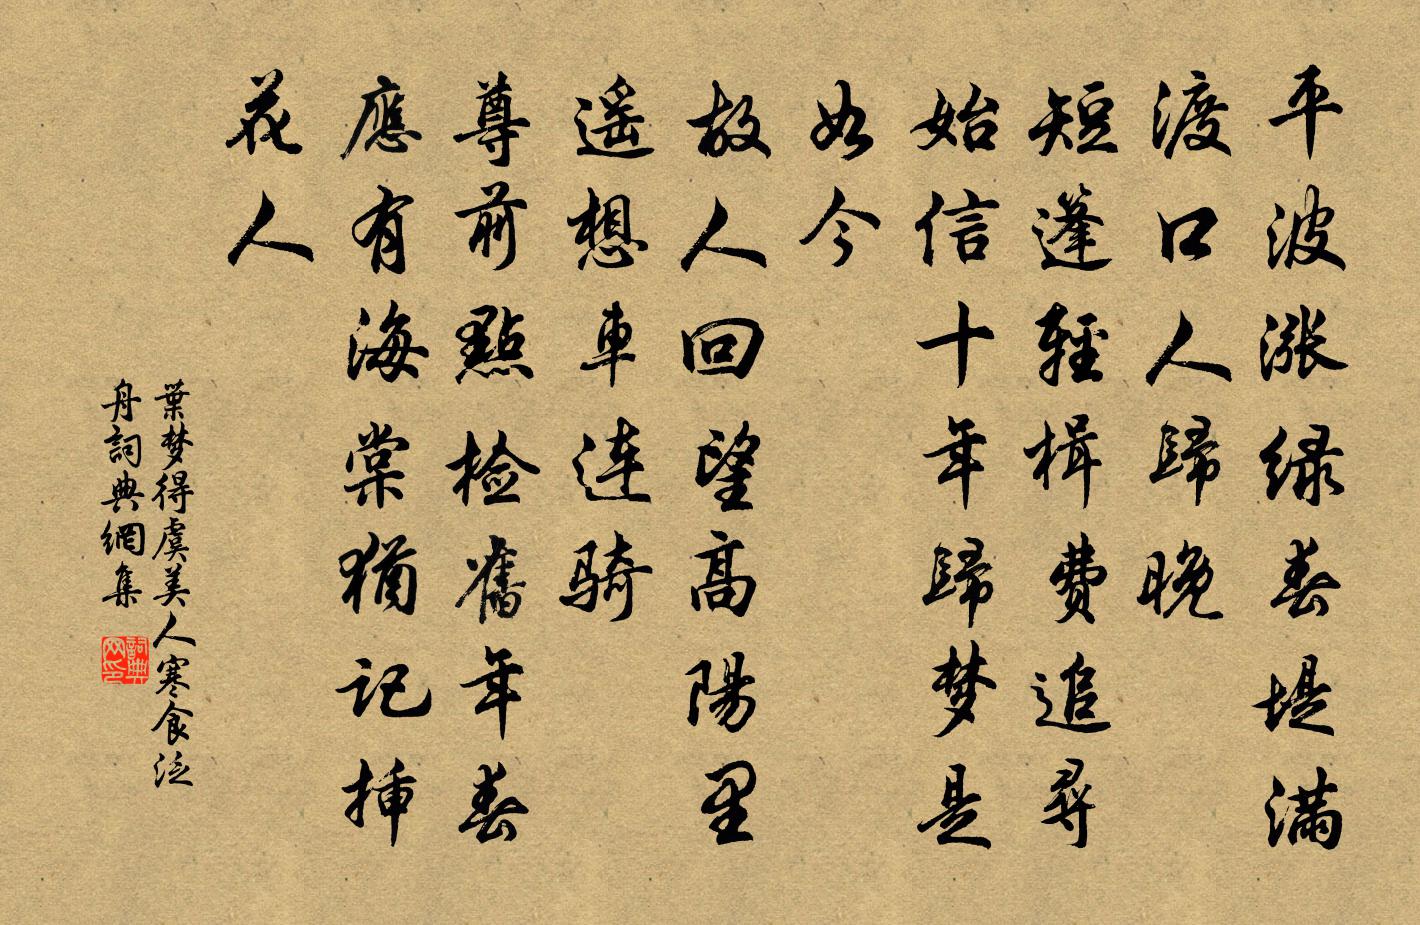 平波漲綠春堤滿
渡口人歸晚
短篷輕楫費追尋
始信十年歸梦是
如今
故人回望高陽里
遥想車連騎
尊前點檢舊年春
應有海棠猶記插
花人
葉梦得虞美人寒食泛
舟詞典網集
詞典网印